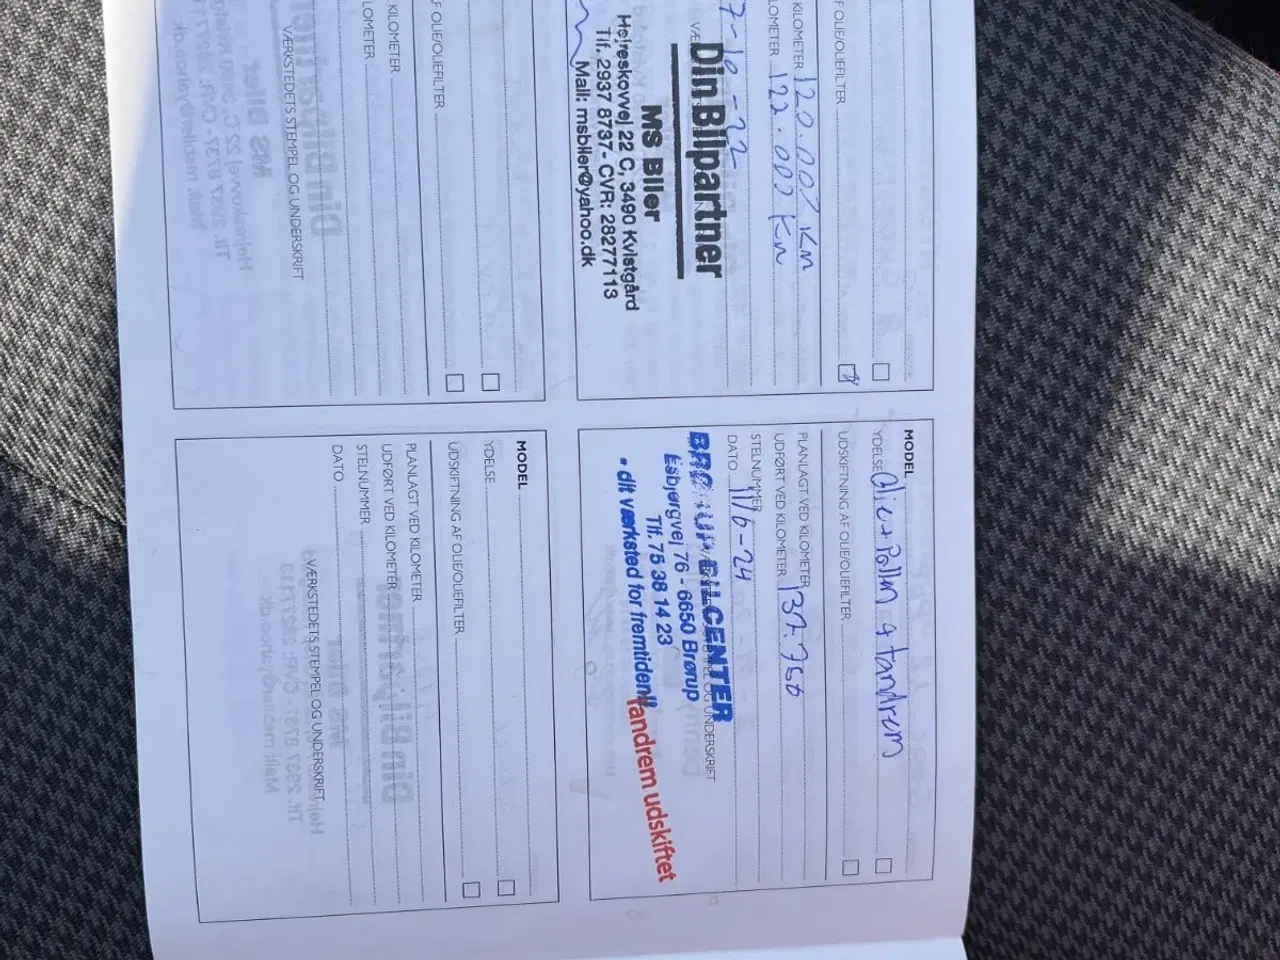 F OLIE/OLIEFILTER
KILOMETER 120.000 KM
LOMETER 122.000 Km
7-10-22
Din Bilpartner
MS Biler
Hejreskovvej 22 C, 3490 Kvistgård
Tlf. 2937 8737 - CVR: 28277113
Mail: msbiler@yahoo.dk
MODEL
YDELSE Olie + Pollen & tandrem
UDSKIFTNING AF OLIE/OLIEFILTER
PLANLAGT VED KILOMETER
UDFØRT VED KILOMETER 137.750
STELNUMMER
DATO 11/6-24
VÆRKSTEDETS STEMPEL OG UNDERSKRIFT
BRØRUP BILCENTER
Esbjergvej 76 - 6650 Brørup
Tlf. 75 38 14 23
- dit værksted for fremtiden!!
Tandrem udskiftet
F OLIE/OLIEFILTER
KILOMETER
LOMETER
VÆRKSTEDETS STEMPEL OG UNDERSKRIFT
MODEL
YDELSE
UDSKIFTNING AF OLIE/OLIEFILTER
PLANLAGT VED KILOMETER
UDFØRT VED KILOMETER
STELNUMMER
DATO
VÆRKSTEDETS STEMPEL OG UNDERSKRIFT